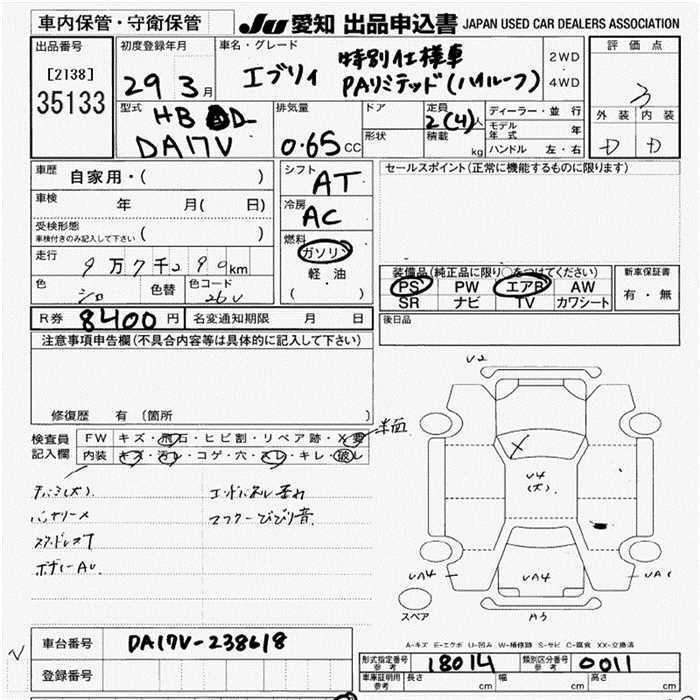 車内保管・守衛保管
JU 愛知 出品申込書 JAPAN USED CAR DEALERS ASSOCIATION
出品番号
[2138]
35133
初度登録年月
29 3月
車名・グレード
エブリィ
特別仕様車
PAリミテッド(ハイルーフ)
2WD
4WD
評価点
3
外装 内装
D D
型式
HB D-
DA17V
排気量
0.65 CC
ドア
形状
定員
2(4)人
積載
kg
ディーラー・並行
モデル年式 年
ハンドル 左・右
車歴 自家用・( )
車検 年 月( 日)
受検形態
車検付きのみ記入して下さい ( )
走行 9万7千290km
色 シロ 色替 色コード 26U
シフト
AT
冷房
AC
燃料
ガソリン
軽・油
( )
セールスポイント(正常に機能するものに限ります)
装備品(純正品に限り○をつけてください)
PS PW エアB AW
SR ナビ TV カワシート
新車保証書
有・無
R券 8400 円 名変通知期限 月 日
後日品
注意事項申告欄(不具合内容等は具体的に記入して下さい)
修復歴 有 (箇所 )
検査員
記入欄
FW キズ・飛石・ヒビ割・リペア跡・X要
内装 キズ・汚レ・コゲ・穴・スレ・キレ・破レ
エンドパネル歪れ
マフラーびびり音
U2
U4
(大)
UA4
UA4
A3
スペア
A-キズ E-エクボ U-凹み W-補修跡 S-サビ C-腐食 XX-交換済
車台番号 DA17V-238618
登録番号
形式指定番号
参考
18014
類別区分番号
参考
0011
車庫証明用
参考
長さ cm 幅 cm 高さ cm